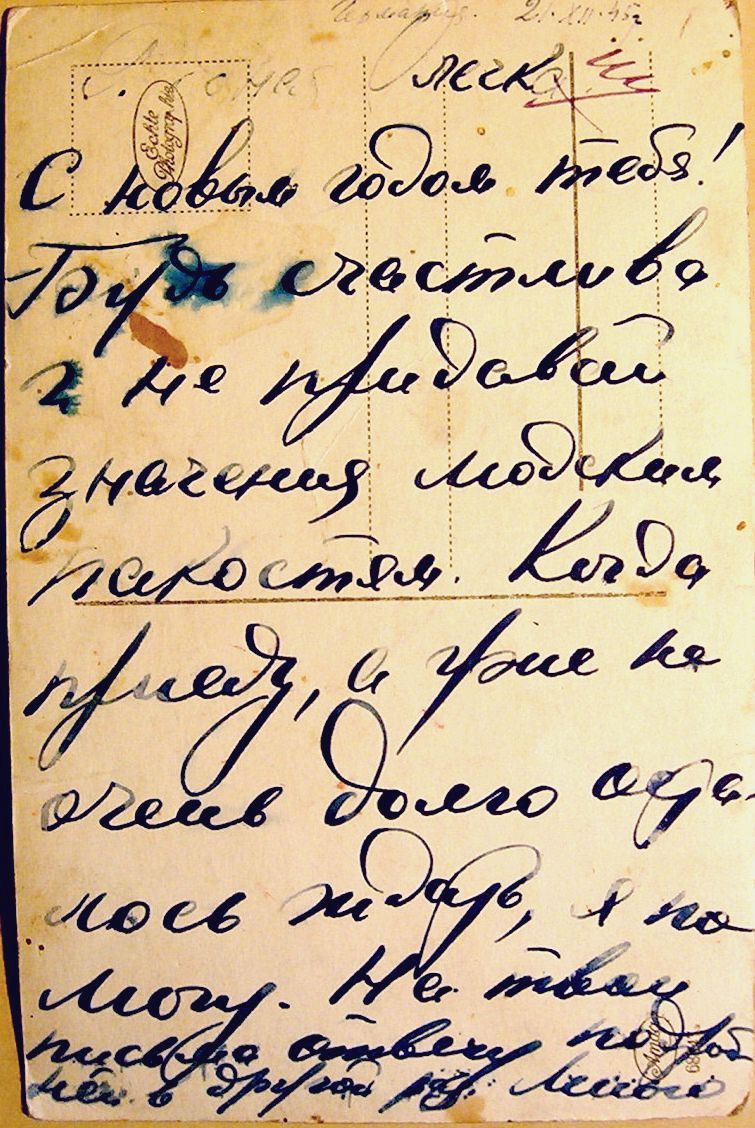 Германия. 21.XII.45г
Echte
Photographie
С новым годом тебя!
Будь счастлива
и не придавай
значения людским
пакостям. Когда
приеду, а уже не
очень долго оста-
лось ждать, я по
могу. На твои
письма отвечу подроб
ней в другой раз.